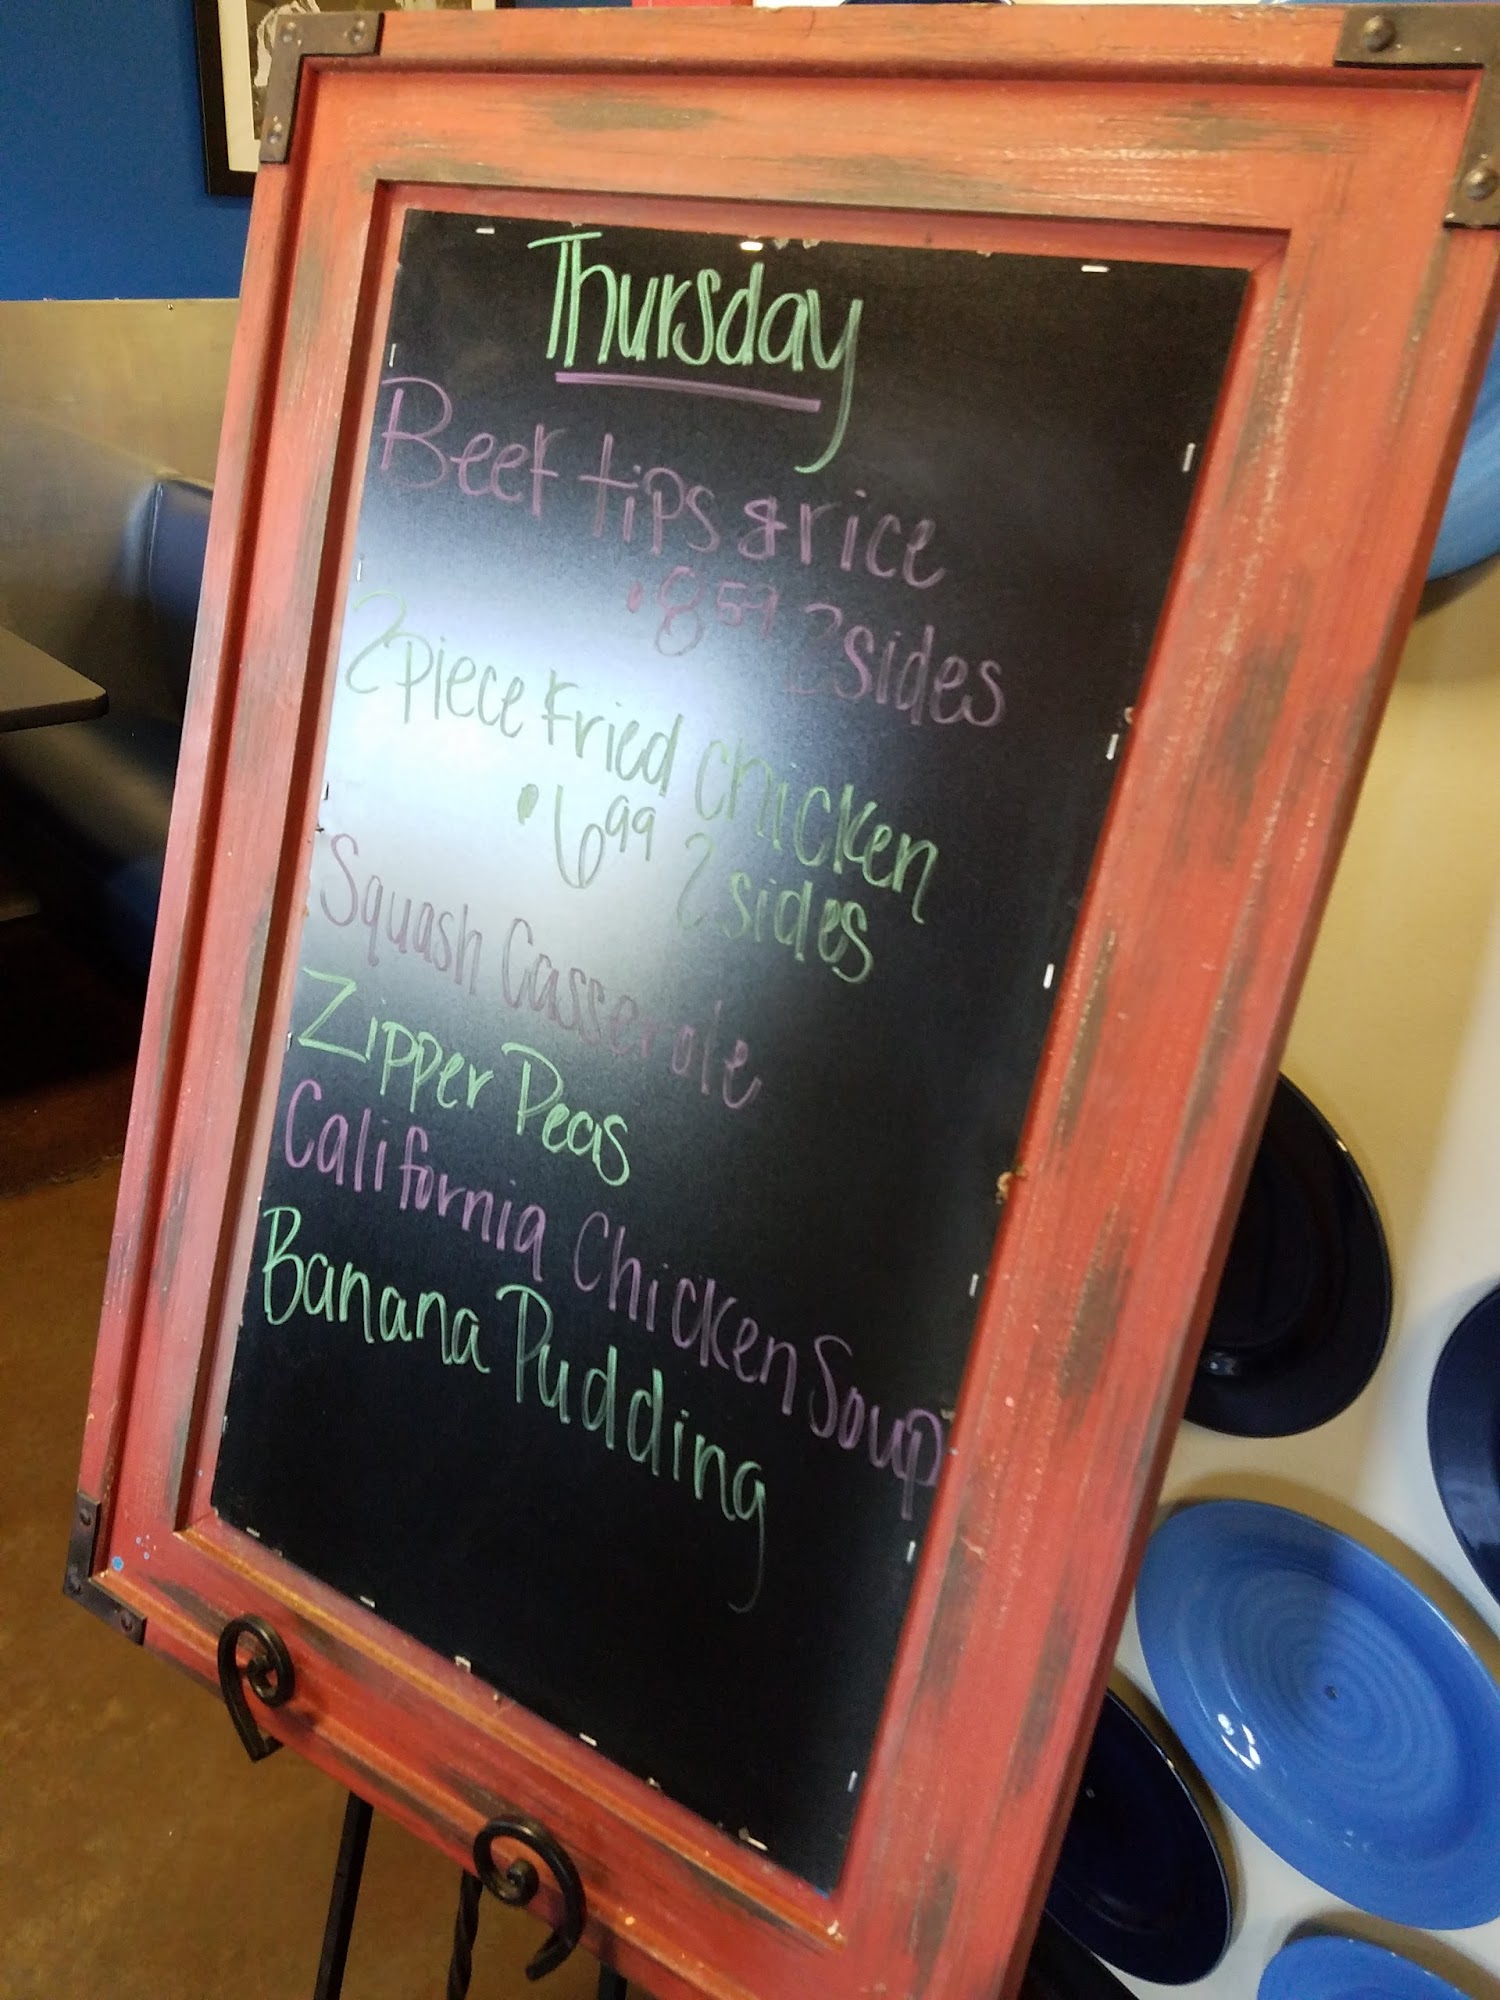 Thursday
Beef tips & rice
.8 59 2 sides
2 piece Fried chicken
.6 99 2 sides
Squash Casserole
Zipper Peas
California Chicken Soup
Banana Pudding